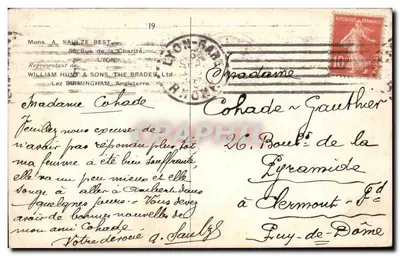 19
Mons. A. SAULZE-BEST
68 Rue de la Charité,
LYON
Représentant de
WILLIAM HUNT & SONS, THE BRADES, Ltd
Lez BIRMINGHAM, Angleterre
LYON-GARE
RHONE
10
Madame Cohade
Veuillez nous excuser de
n'avoir pas répondu plus tôt
ma femme a été bien souffrante,
elle va un peu mieux et elle
songe à aller à Ambert dans
quelques jours - Vous devez
avoir de bonnes nouvelles de
mon ami Cohade
Votre dévoué A. Saulze
Madame
Cohade - Gauthier
26. Boulᵈ de la
Pyramide
à Clermont-Fd
Puy-de-Dôme